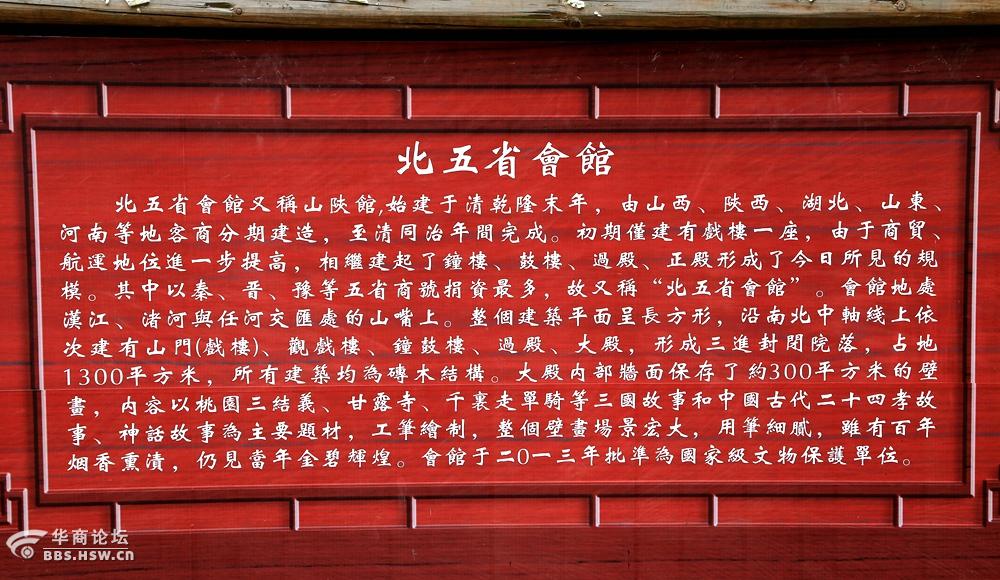 北五省會館
北五省會館又稱山陝館,始建于清乾隆末年，由山西、陝西、湖北、山東、
河南等地客商分期建造，至清同治年間完成。初期僅建有戲樓一座，由于商貿、
航運地位進一步提高，相繼建起了鐘樓、鼓樓、過殿、正殿形成了今日所見的規
模。其中以秦、晋、豫等五省商號捐資最多，故又稱“北五省會館”。會館地處
漢江、渚河與任河交匯處的山嘴上。整個建築平面呈長方形，沿南北中軸綫上依
次建有山門(戲樓)、觀戲樓、鐘鼓樓、過殿、大殿，形成三進封閉院落，占地
1300平方米，所有建築均為磚木結構。大殿内部牆面保存了約300平方米的壁
畫，内容以桃園三結義、甘露寺、千裏走單騎等三國故事和中國古代二十四孝故
事、神話故事為主要題材，工筆繪制，整個壁畫場景宏大，用筆細膩，雖有百年
烟香熏漬，仍見當年金碧輝煌。會館于二0一三年批準為國家級文物保護單位。
华商论坛
BBS.HSW.CN